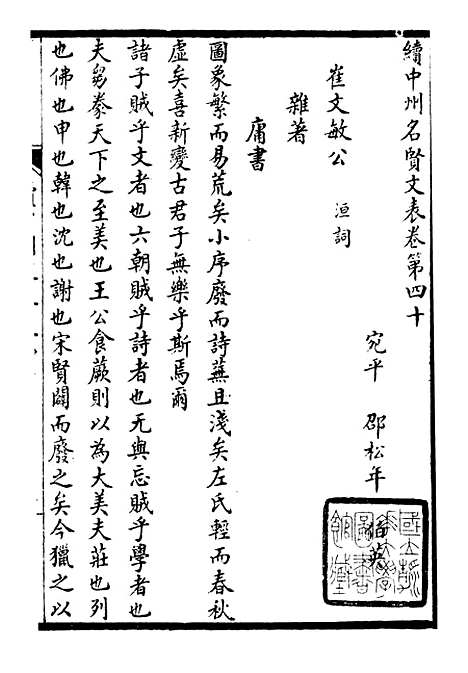 續中州名賢文表卷第四十
宛平 邵松年 伯英
崔文敏公 洹詞
雜著
庸書
圖象繁而易荒矣小序廢而詩蕪且淺矣左氏輕而春秋
虛矣喜新變古君子無樂乎斯焉爾
諸子賊乎文者也六朝賊乎詩者也无與忘賊乎學者也
夫芻豢天下之至美也王公食蕨則以為大美夫莊也列
也佛也申也韓也沈也謝也宋賢闢而廢之矣今獵之以